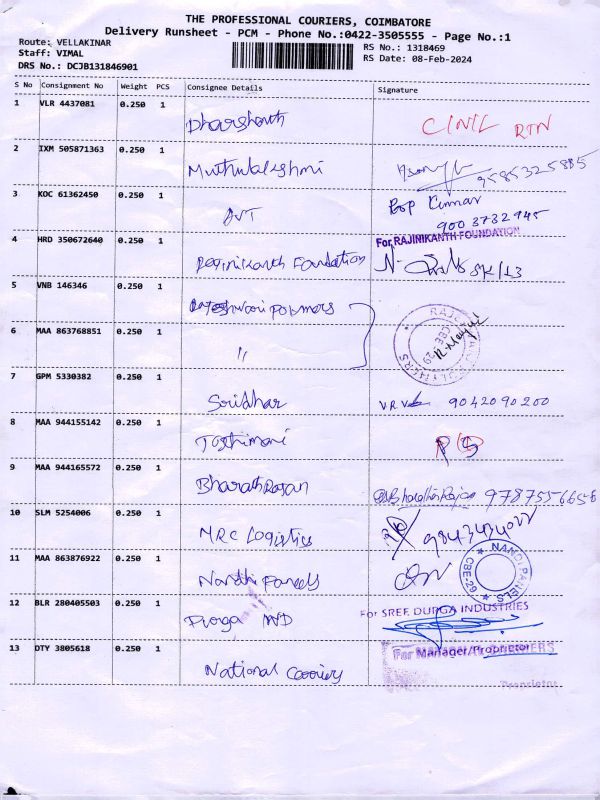 THE PROFESSIONAL COURIERS, COIMBATORE
Delivery Runsheet - PCM - Phone No.:0422-3505555 - Page No.:1
Route: VELLAKINAR
RS No.: 1318469
Staff: VIMAL
RS Date: 08-Feb-2024
DRS No.: DCJB131846901
S No Consignment No Weight PCS Consignee Details Signature
1 VLR 4437081 0.250 1 Dharshanth CINIL RTN
2 IXM 505871363 0.250 1 Muthulakshmi 9585325885
3 KOC 61362450 0.250 1 Kumar
9003732945
4 HRD 350672640 0.250 1 Rajinikanth Foundation For RAJINIKANTH FOUNDATION
5 VNB 146346 0.250 1
6 MAA 863768851 0.250 1 " CBE-29
7 GPM 5330382 0.250 1 Sridhar 9042090200
8 MAA 944155142 0.250 1
9 MAA 944165572 0.250 1 Bharath Rajan 9787556656
10 SLM 5254006 0.250 1 MRC Logistics
11 MAA 863876922 0.250 1 Nandhi Panels NANDI PANELS CBE-29
12 BLR 280405503 0.250 1 Durga IND For SREE DURGA INDUSTRIES
13 DTY 3805618 0.250 1 National Carriers For Manager/Proprietor
Proprietor